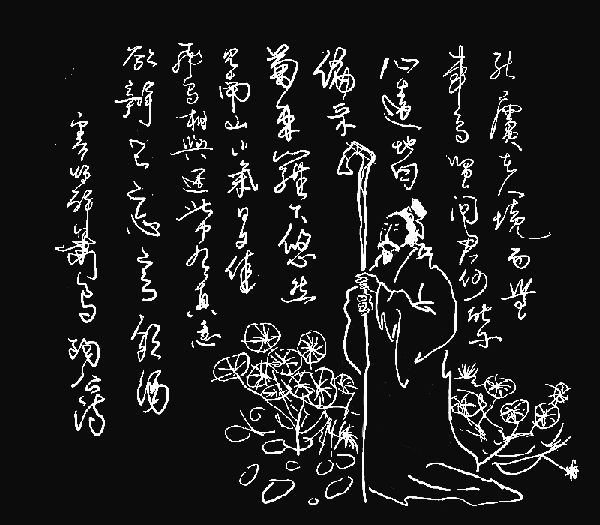 結廬在人境而無
車馬喧問君何能尔
心遠地自
偏采
菊東籬下悠然
見南山山氣日夕佳
飛鳥相與還此中有真意
欲辯已忘言飲酒
陶公詩